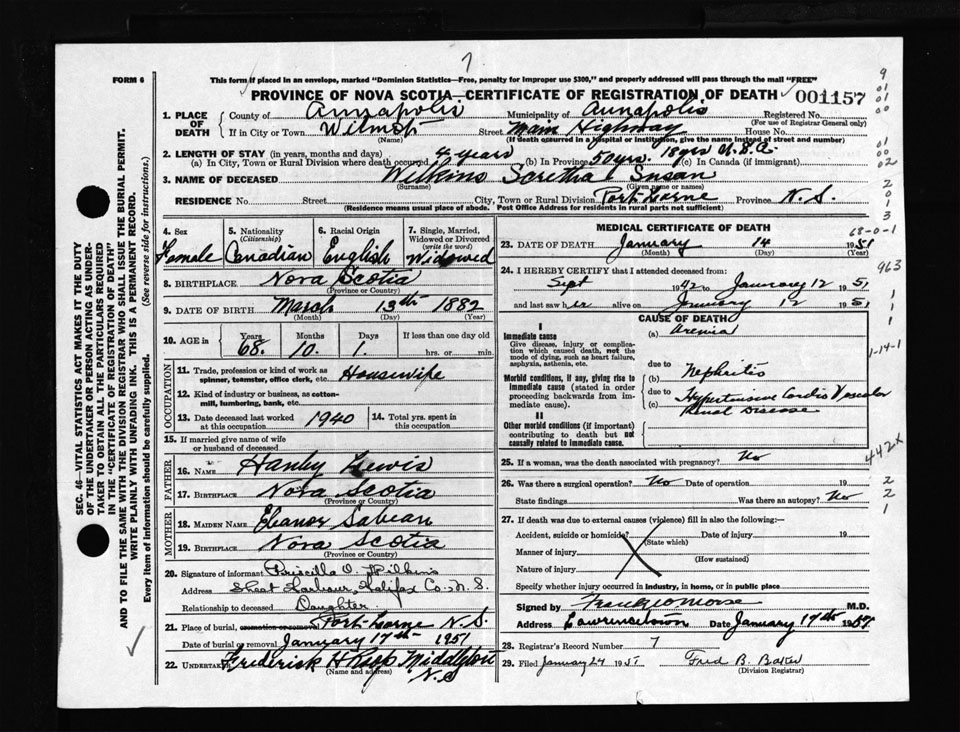 7
FORM 6
This form if placed in an envelope, marked "Dominion Statistics—Free, penalty for improper use $300," and properly addressed will pass through the mail "FREE"
PROVINCE OF NOVA SCOTIA—CERTIFICATE OF REGISTRATION OF DEATH
001157
1. PLACE OF DEATH
County of Annapolis Municipality of Annapolis Registered No.
(For use of Registrar General only)
If in City or Town Wilmot Street Main Highway House No.
(Name) (If death occurred in a hospital or institution, give the name instead of street and number)
2. LENGTH OF STAY (in years, months and days) 18 yrs U.S.A.
(a) In City, Town or Rural Division where death occurred 4 years (b) In Province 50 yrs. (c) In Canada (if immigrant)
3. NAME OF DECEASED Wilkins Scretha Susan
(Surname) (Given name or names)
RESIDENCE No. Street City, Town or Rural Division Port Lorne Province N.S.
(Residence means usual place of abode. Post Office Address for residents in rural parts not sufficient)
4. Sex Female
5. Nationality (Citizenship) Canadian
6. Racial Origin English
7. Single, Married, Widowed or Divorced (write the word) Widowed
8. BIRTHPLACE Nova Scotia
(Province or Country)
9. DATE OF BIRTH March 13th 1882
(Month) (Day) (Year)
10. AGE in Years 68. Months 10. Days 1. If less than one day old hrs. or min.
OCCUPATION
11. Trade, profession or kind of work as spinner, teamster, office clerk, etc. Housewife
12. Kind of industry or business, as cotton-mill, lumbering, bank, etc.
13. Date deceased last worked at this occupation 1940
14. Total yrs. spent in this occupation
15. If married give name of wife or husband of deceased
FATHER
16. NAME Hanley Lewis
17. BIRTHPLACE Nova Scotia
(Province or Country)
MOTHER
18. MAIDEN NAME Eleanor Sabean
19. BIRTHPLACE Nova Scotia
(Province or Country)
20. Signature of informant Priscilla O. Wilkins
Address Sheet Harbour, Halifax Co. N.S.
Relationship to deceased Daughter
21. Place of burial, cremation or removal Port Lorne N.S.
Date of burial or removal January 17th 1951
22. UNDERTAKER Frederick H Roop Middleton N.S
(Name and address)
MEDICAL CERTIFICATE OF DEATH
23. DATE OF DEATH January 14 1951
(Month) (Day) (Year)
24. I HEREBY CERTIFY that I attended deceased from:
Sept 1942 to January 12 1951
and last saw her alive on January 12 1951
CAUSE OF DEATH
I
Immediate cause
Give disease, injury or complication which caused death, not the mode of dying, such as heart failure, asphyxia, asthenia, etc.
(a) Uremia
due to
Morbid conditions, if any, giving rise to immediate cause (stated in order proceeding backwards from immediate cause).
(b) Nephritis
due to
(c) Hypertensive Cardio Vascular Renal Disease
II
Other morbid conditions (if important) contributing to death but not causally related to immediate cause.
25. If a woman, was the death associated with pregnancy? No
26. Was there a surgical operation? No Date of operation 19
State findings Was there an autopsy? No
27. If death was due to external causes (violence) fill in also the following:—
Accident, suicide or homicide? Date of injury 19
(State which)
Manner of injury
(How sustained)
Nature of injury
Specify whether injury occurred in industry, in home, or in public place
Signed by M.D.
Address Lawrencetown Date January 17th 1951
28. Registrar's Record Number 7
29. Filed January 24 1951 Fred B. Baker
(Division Registrar)
68-0-1
963
1-14-1
442x
SEC. 46—VITAL STATISTICS ACT MAKES IT THE DUTY OF THE UNDERTAKER OR PERSON ACTING AS UNDERTAKER TO OBTAIN ALL THE PARTICULARS REQUIRED IN THE "CERTIFICATE OF REGISTRATION OF DEATH" AND TO FILE THE SAME WITH THE DIVISION REGISTRAR WHO SHALL ISSUE THE BURIAL PERMIT.
WRITE PLAINLY WITH UNFADING INK. THIS IS A PERMANENT RECORD.
Every item of information should be carefully supplied. (See reverse side for instructions.)